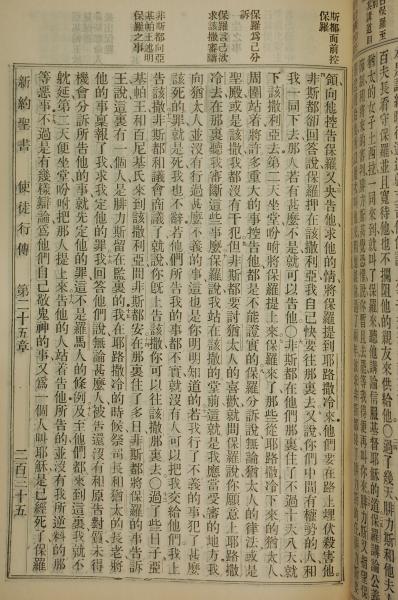 斯都面前控
保羅
保羅爲己分
訴
保羅言己次
求該撒審斷
非斯都向亞
基帕王述明
保羅之事
領向他控告保羅又央告他求他的情將保羅提到耶路撒冷來他們要在路上埋伏殺害他
非斯都卻回答說保羅押在該撒利亞我自己快要往那裏去又說你們中間有權勢的人和
我一同下去那人若有甚麼不是就可以告他〇非斯都在他們那裏住了不過十天八天就
下該撒利亞去第二天坐堂吩咐將保羅提上來保羅來了那些從耶路撒冷下來的猶太人
周圍站着將許多重大的事控告他都是不能證實的保羅分訴說無論猶太人的律法或是
聖殿或是該撒我都沒有干犯但非斯都要討猶太人的喜歡就問保羅說你願意上耶路撒
冷去在那裏聽我審斷這些事麼保羅說我站在該撒的堂前這就是我應當受審的地方我
向猶太人並沒有行過甚麼不義的事這也是你明明知道的若我行了不義的事犯了甚麼
該死的罪就是死我也不辭若他們所告我的事都不實就沒有人可以把我交給他們我上
告該撒非斯都和議會商議了就說你旣上告該撒你可以往該撒那裏去〇過了些日子亞
基帕王和百尼基氏來到該撒利亞問非斯都安在那裏住了多日非斯都將保羅的事告訴
王說這裏有一個人是腓力斯留在監裏的我在耶路撒冷的時候祭司長和猶太的長老將
他的事稟報了我求我定他的罪我回答他們說無論甚麼人被告還沒有和原告對質未得
機會分訴所告他的事就先定他的罪這不是羅馬人的條例及至他們都來到這裏我就不
躭延第二天便坐堂吩咐把那人提上來告他的人站着告他所告的並沒有我所逆料的那
等惡事不過是有幾樣辯論爲他們自己敬鬼神的事又爲一個人叫耶穌是已經死了保羅
新約聖書　使徒行傳　第二十五章　二百三十五